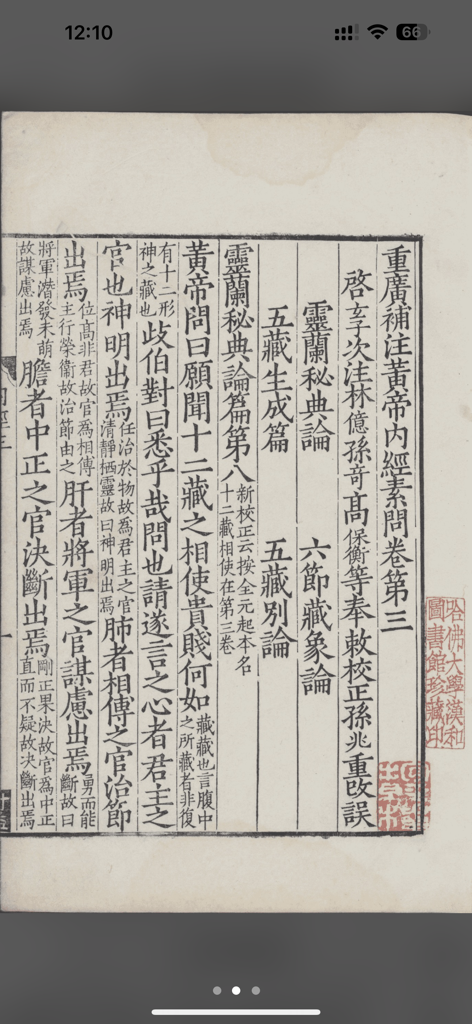 12:10
66
重廣補注黃帝內經素問卷第三
啓玄子次注林億孫奇高保衡等奉敕校正孫兆重改誤
靈蘭秘典論 六節藏象論
五藏生成篇 五藏別論
靈蘭秘典論篇第八新校正云按全元起本名十二藏相使在第三卷
黃帝問曰願聞十二藏之相使貴賤何如藏藏也言腹中之所藏者非復
有十二形神之藏也歧伯對曰悉乎哉問也請遂言之心者君主之
官也神明出焉任治於物故為君主之官清靜栖靈故曰神明出焉肺者相傳之官治節
出焉位高非君故官為相傳主行榮衞故治節由之肝者將軍之官謀慮出焉勇而能斷故曰
將軍潛發未萌故謀慮出焉膽者中正之官決斷出焉剛正果決故官為中正直而不疑故決斷出焉
哈佛大學漢和圖書館珍藏印